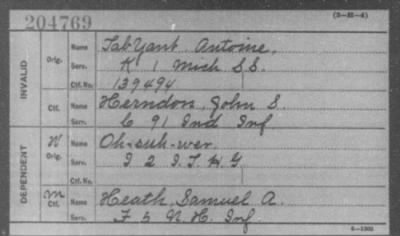 204769
(3-21-4)
INVALID
Orig. Name Tabyant, Antoine.
Serv. K 1 Mich S.S.
Ctf. No. 139494
Ctf. Name Herndon, John S.
Serv. C 91 Ind Inf
DEPENDENT
W Orig. Name Oh-suh-wer.
Serv. I 2 I. T. H. G
Ctf. No.
M Ctf. Name Heath, Samuel A.
Serv. F 5 N. H. Inf.